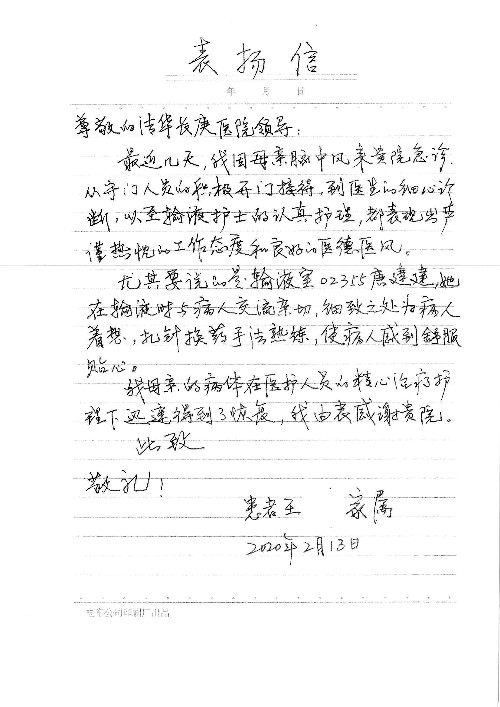 表扬信
年 月 日
尊敬的清华长庚医院领导：
最近几天，我因母亲脑中风来贵院急诊.
从守门人员的积极开门接待，到医生的细心诊
断，以至输液护士的认真护理，都表现出严
谨热忱的工作态度和良好的医德医风。
尤其要说的是输液室02355唐建建，她
在输液时与病人交流亲切，细致之处为病人
着想，扎针换药手法熟练，使病人感到舒服
贴心。
我母亲的病体在医护人员的精心治疗护
理下迅速得到了恢复，我由衷感谢贵院。
此致
敬礼！
患者王 家属
2020年2月13日
电车公司印刷厂出品